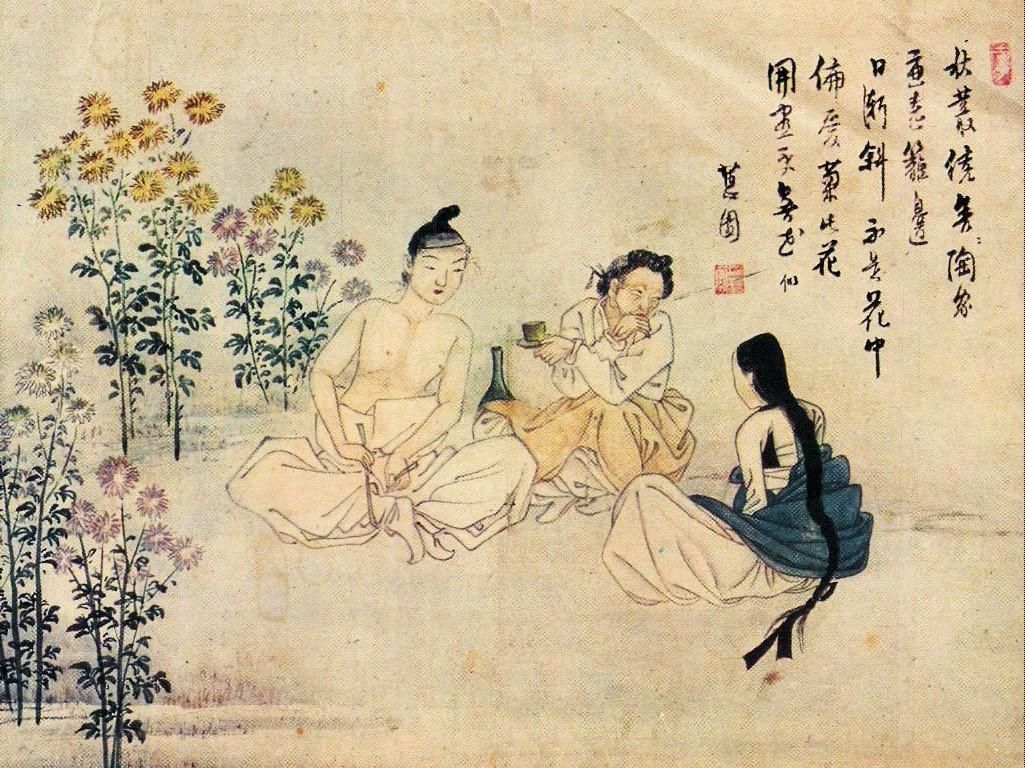 秋叢繞舍陶家
遍繞籬邊
日漸斜不是花中
偏愛菊此花
開盡更無花似
蕙園